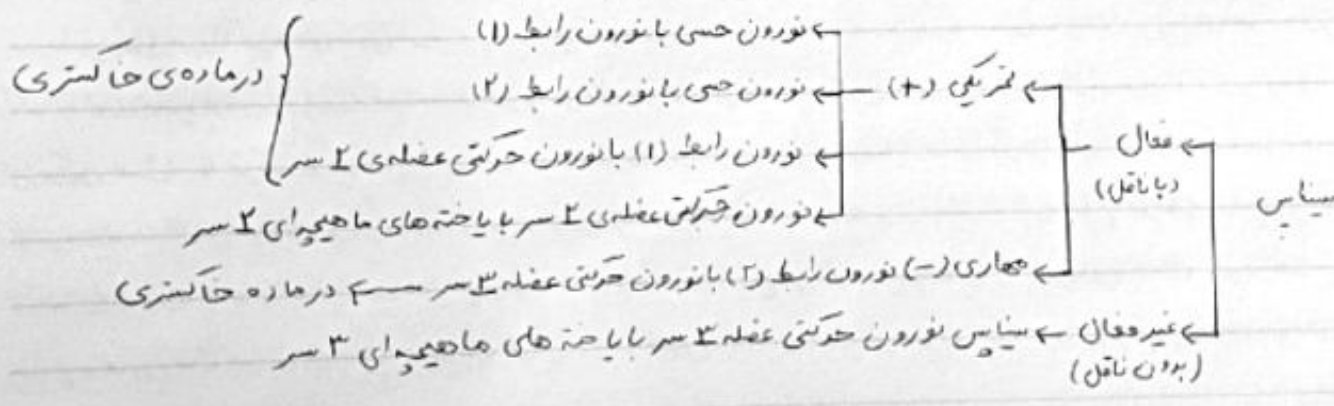 سیناپس
← فعال
(با ناقل)
← تحریکی (+)
← نورون حسی با نورون رابط (۱)
← نورون حسی با نورون رابط (۲)
← نورون رابط (۱) با نورون حرکتی عضله‌ی ۲ سر
در ماده‌ی خاکستری
← نورون حرکتی عضله‌ی ۲ سر با یاخته های ماهیچه ای ۲ سر
← مهاری (-) نورون رابط (۲) با نورون حرکتی عضله ۳ سر ← در ماده خاکستری
← غیر فعال ← سیناپس نورون حرکتی عضله ۳ سر با یاخته های ماهیچه ای ۳ سر
(بدون ناقل)